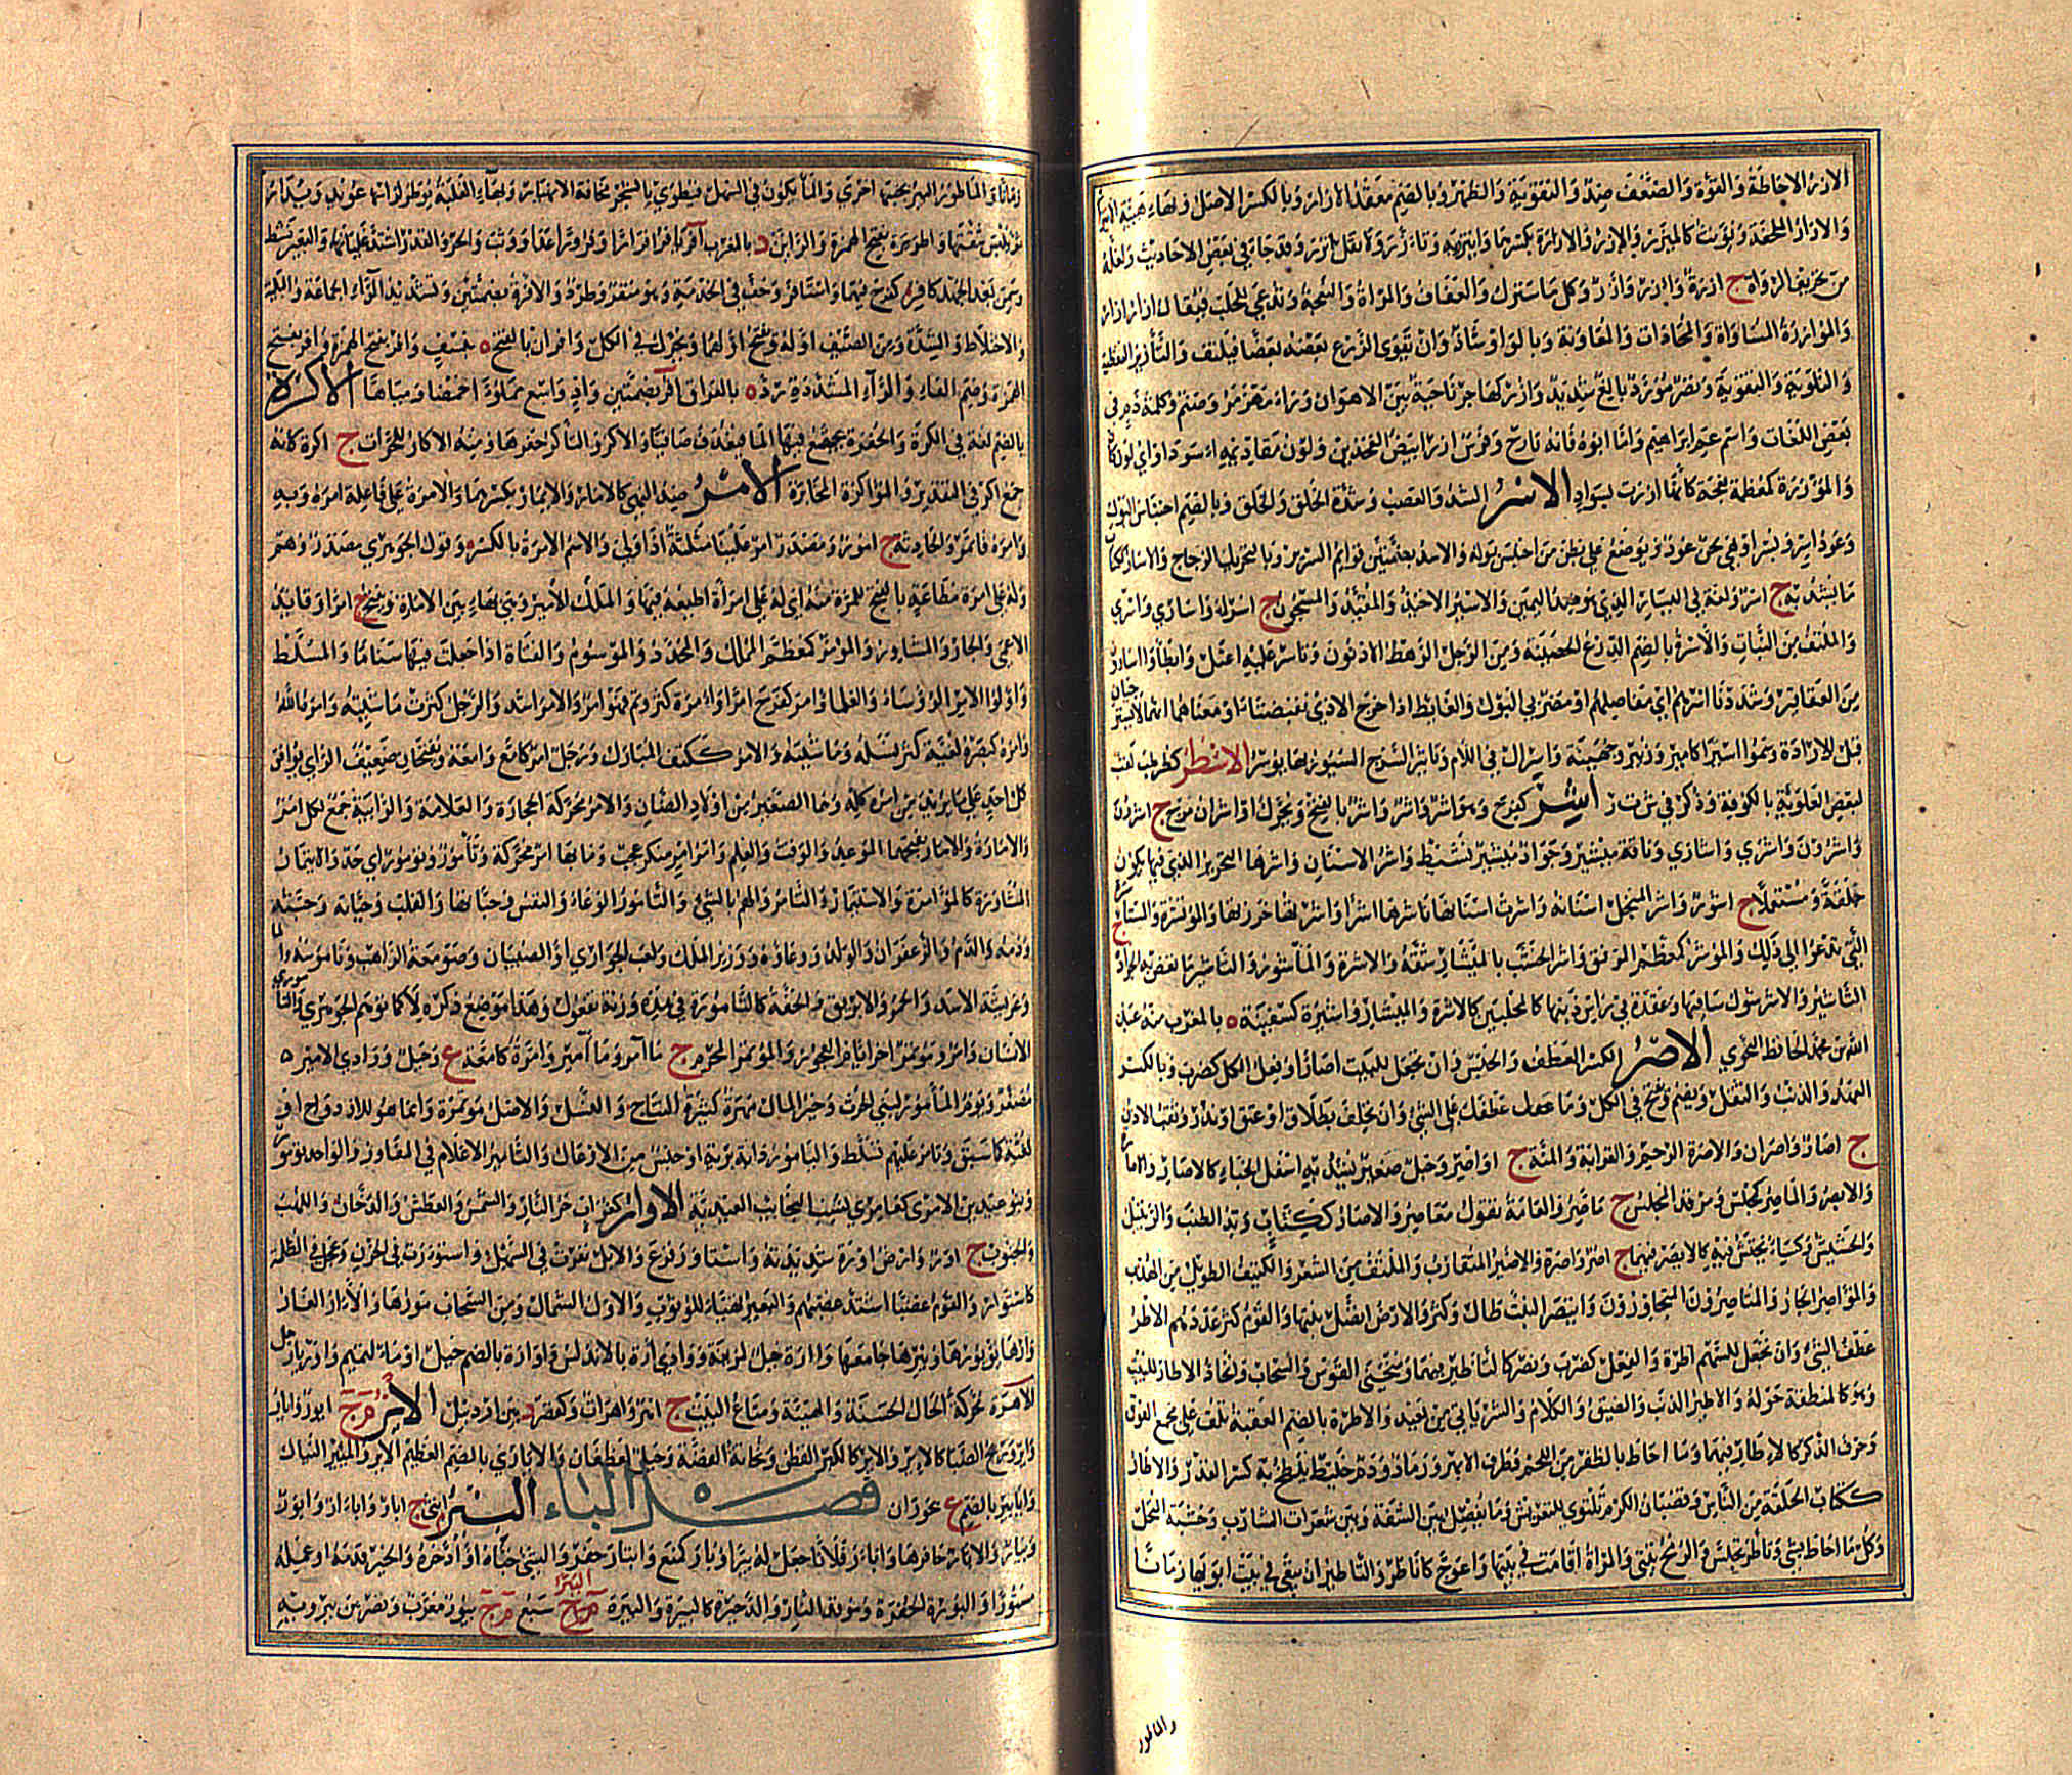 الازر الاحاطة والقوة والضعف ضد والتقوية والظهر وبالضم معقد الازار وبالكسر الاصل وبهاء هيئة الايتزار
والازار الملحفة ويؤنث كالميزر والازر والازارة بكسرهما وايتزر به وتازر ولا تقل اتزر وقد جاء في بعض الاحاديث ولعله
من تحريف الرواة ج ازرة وازر وازر وكل ما سترك والعفاف والمراة والنعجة وتدعى للحلب فيقال ازار ازار
والموازرة المساواة والمحاذات والمعاونة وبالواو شاذ وان يقوى الزرع بعضه بعضا فيلتف والتازير التغطية
والتقوية ونصر موزر بالغ شديد وازر كهاجر ناحية بين الاهواز ورامهرمز وصنم وكلمة ذم في
بعض اللغات واسم عم ابراهيم واما ابوه فانه تارح وفرس ازر ابيض الفخذين ولون مقاديمه اسود او اي لون كان
والموزرة كمعظمة نعجة كانما ازرت بسواد الاسر الشد والعصب وشدة الخلق والخلق وبالضم احتباس البول
وعود اسر ويسر او هي لحن عود يوضع على بطن من احتبس بوله والاسر بضمتين قوائم السرير وبالتحريك الزجاج والاسار ككتاب
ما يشد به ج اسر ولغة في اليسار الذي هو ضد اليمين والاسير الاخيذ والمقيد والمسجون ج اسراء واسارى واسرى
والملتف من النبات والاسرة بالضم الدرع الحصينة ومن الرجل الرهط الادنون وتاسر عليه اعتل وابطا واسارون
من العقاقير وشددنا اسرهم اي مفاصلهم او مصرتي البول والغائط اذا خرج الاذى تقبضتا او معناهما انهما لا يسترخيان
قبل الارادة وسموا اسيرا كامير وزبير وجهينة واسرال في اللام وتاسير السرج السيور بها يوسر الاسطر كطرطب لقب
لبعض العلوية بالكوفة وذكر في ش ت ر اشر كفرح وهو اشر واشر واشر بالفتح ويحرك واشران مرح ج اشرون
واشرون واشرى واشارى وناقة ميشير وجواد ميشير نشيط واشر الاسنان واشرها التحزيز الذي فيها يكون
خلقة ومستعملا ج اشور واشر المنجل اسنانه واشرت اسنانها تاشرها اشرا واشرتها حززتها والموتشرة والمستاشرة
التي تدعوا الى ذلك والموشر كمعظم المرقق واشر الخشب بالميشار شقه والاشرة والماشورة والتاشير ما تعض به الجرادة
التاشير والاشر شوك ساقيها وعقدة في راس ذنبها كالمخلبين كالاشرة والميشار واشيرة كسفينة ه بالمغرب منه عبد
الله بن محمد الحافظ النحوي الاصر الكسر العطف والحبس وان تجعل للبيت اصارا وفعل الكل كضرب وبالكسر
العهد والذنب والثقل ويضم ويفتح في الكل وما عطفك على الشيء وان تحلف بطلاق او عتق او نذر وثقب الاذن
ج اصار واصران والاصرة الرحم والقرابة والمنة ج اواصر وحبل صغير يشد به اسفل الخباء كالاصار والاصارة
والايصر والماصر كمجلس ومرقد المحبس ج ماصر والعامة تقول معاصر والاصار ككتاب وتد الطنب والزنبيل
والحشيش وكساء يحتش فيه كالايصر فيهما ج اصر واصرة والاصير المتقارب والملتف من الشعر والكثيف الطويل من الهدب
والمواصر الجار والمتاصرون المتجاورون وايتصر النبت طال وكثر والارض اتصل نبتها والقوم كثر عددهم الاطر
عطف الشيء وان تجعل للسهم اطرة والفعل كضرب ونصر كالتاطير فيهما ومنحنى القوس والسحاب واتخاذ الاطار للبيت
وهو كالمنطقة حوله والاطير الذنب والضيق والكلام والشر ياتي من بعيد والاطرة بالضم العقبة تلف على مجمع الفوق
وحرف الذكر كالاطار فيهما وما احاط بالظفر من اللحم وطرف الابهر ورماد ودم خليط يلطخ به كسر القدر والاطار
ككتاب الحلقة من الناس وقضبان الكرم تلتوى للتعريش وما يفصل بين الشفة وبين شعرات الشارب وخشبة المنخل
وكل ما احاط بشيء وتاطر تحبس والرمح تثنى والمراة اقامت في بيتها واعوج كاناطر والتاطير ان تبقى في بيت ابويها زمانا
والماطور
زمانا والماطور البير بجنبها اخرى والماء يكون في السهل فيطوى بالشجر مخافة الانهيار وبهاء العلبة يوطر لراسها عويد ويدار
ثم يلبس شفتها واطريرة بفتح الهمزة والراين د بالمغرب افر يافر افرا وافورا عدا ووثب والحر والقدر اشتد غليانهما والبعير نشط
وسمن بعد الجهد كافر كفرح فيهما واستافر وخف في الخدمة وهو ميفر وطرد والافرة بضمتين وتشديد الراء الجماعة والبلية
والاختلاط والشدة ومن الصيف اوله ويفتح اولها ويحرك في الكل وافران بالفتح ه بنسف وافر بفتح الهمزة وافر بفتح
الهمزة وضم الفاء والراء المشددة نهر د ه بالعراق اقر بضمتين واد واسع مملوء احمضا ومياها الاكرة
بالضم لغة في الكرة والحفرة يجتمع فيها الماء فيغرف صافيا والاكر والتاكر حفرها ومنه الاكار للحراث ج اكرة كانه
جمع اكر في التقدير والمواكرة المخابرة الامر ضد النهي كالامار والايمار بكسرهما والامرة على فاعلة امره وبه
وامره فاتمر والحادثة ج امور ومصدر امر علينا مثلثة اذا ولي والاسم الامرة بالكسر وقول الجوهري مصدر وهم
وله علي امرة مطاعة بالفتح للمرة منه اي له علي امرة اطيعه فيها والملك الامير وهي بهاء بين الامارة ويفتح ج امراء وقايد
الاعمى والجار والمشاور والمومر كمعظم المملك والمحدد والموسوم والقناة اذا جعلت فيها سنانا والمسلط
واولوا الامر الروساء والعلماء وامر كفرح امرا وامرة كثر وتم فهو امر والامر اشتد والرجل كثرت ماشيته وامره الله
وامره كنصره لغية كثر نسله وماشيته والامر ككتف المبارك ورجل امر كامع وامعة ويفتحان ضعيف الراي يوافق
كل احد على ما يريد من امره كله وهما الصغير من اولاد الضان والامرة محركة الحجارة والعلامة والرابية جمع الكل امر
والامارة والامار بفتحهما الموعد والوقت والعلم وامر امر منكر عجب وما بها امر محركة وتامور وتومور اي احد والايتمار
المشاورة كالموامرة والاستيمار والتامر والهم بالشيء والتامور الوعاء والنفس وحياتها والقلب وحياته وحبته
ودمه والدم والزعفران والولد ووعاؤه ووزير الملك ولعب الجواري او الصبيان وصومعة الراهب وناموسه والماء
وعريسة الاسد والخمر والابريق والحقة كالتامورة في هذه وزنه تفعول وهذا موضع ذكره لا كما توهم الجوهري والتاموري
الانسان وامر وموتمر اخر ايام العجوز والموتمر المحرم ج مامر ومامير وامرة كامعة ع وجبل ووادي الامير ه
مصغر ويوم المامور لبني الحرث وخير المال مهرة كثيرة النتاج والنسل والاصل مومرة وانما هو للازدواج او
لغية كما سبق وتامر عليهم تسلط واليامور دابة برية او جنس من الاوعال والتامير الاعلام في المفاوز الواحد تومور
وبنو عيد بن الامرى كعامري نسبت اليه النجائب العيدية الاوار كغراب حر النار والشمس والعطش والدخان واللهب
والجنوب ج اور وارض اورة شديدته واستاور فزع والابل نفرت في السهل واستورت في الحزن وعجل في الظلمة
كاستوار والقوم غضبا اشتد غضبهم والبعير تهيا للوثوب والاور الشمال ومن السحاب مورها والاار العار
وارها يوورها ويئيرها جامعها واارة جبل لمزينة ووادي ارة بالاندلس واوارة بالضم جبل او ماء لتميم واوريا رجل
الاهرة محركة الحال الحسنة والهيئة ومتاع البيت ج اهر واهرات وكعصرد بين اردبيل الاير م ج ايور واباير
واير وريح الصبا كالاير والاير كالكير القطن ونحاتة الفضة وجبل لغطفان والايارى بالضم العظيم الاير والميير النياك
واياير بالضم ع بحوران فصل الباء البئر انثى ج ابار واباار وابور
وبئار والابار حافرها واباء وفلانا جعل له بئرا وبار كمنع وابتار حفر والشيء خباه او ادخره والخير قدمه او عمله
مستورا والبورة الحفرة وموقد النار والذخيرة كالبئرة والبئيرة الببر م ج سبع م ج ببور معرب ونصر بن ببرويه